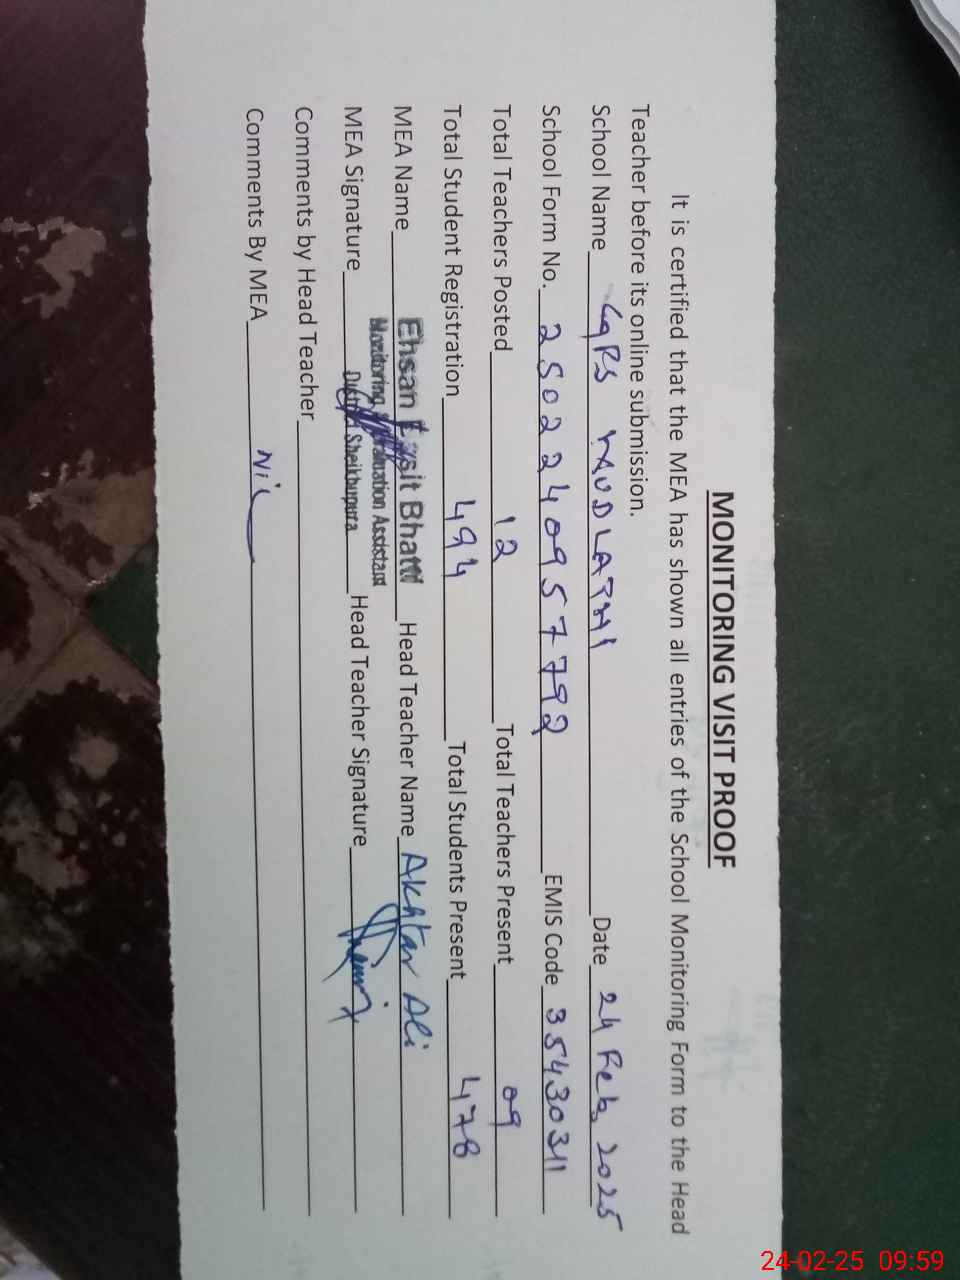 MONITORING VISIT PROOF
It is certified that the MEA has shown all entries of the School Monitoring Form to the Head
Teacher before its online submission.
School Name Date 24 Feb, 2025
School Form No. 2502240957792 EMIS Code 35430311
Total Teachers Posted 12 Total Teachers Present 09
Total Student Registration 494 Total Students Present 478
MEA Name Ehsan Bhatti Head Teacher Name Akhtar Ali
Monitoring Evaluation Assistant
MEA Signature District Sheikhupura Head Teacher Signature
Comments by Head Teacher
Comments By MEA Nil
24-02-25 09:59